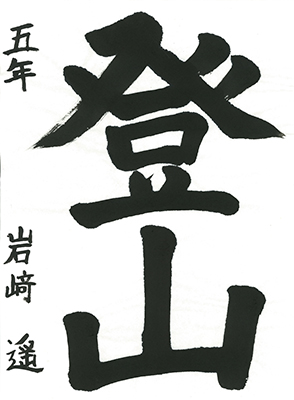 登山
五年 岩﨑 遥